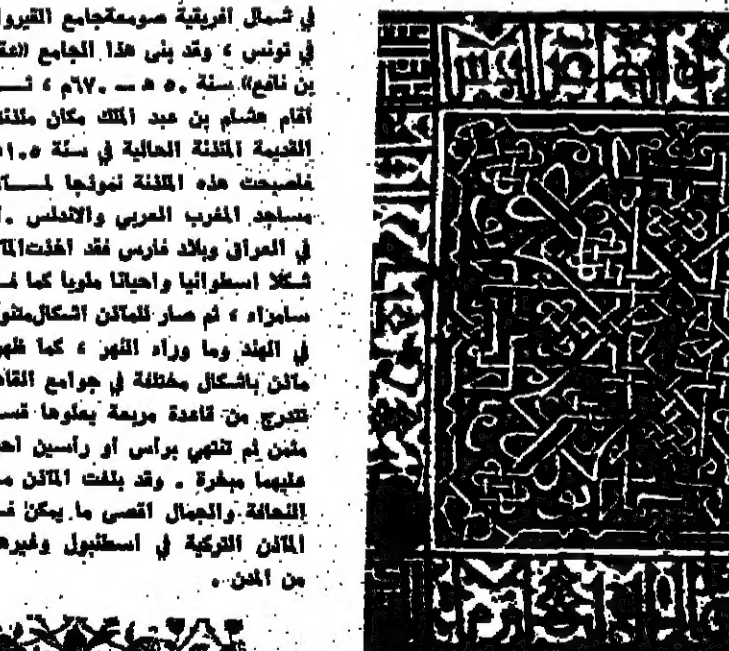 في شمال افريقية صومعة جامع القيروا
في تونس ، وقد بنى هذا الجامع «عق
بن نافع» سنة ٥٠ هـ — ٦٧٠م ، ثـــ
أقام هشام بن عبد الملك مكان مئذنة
القديمة المئذنة الحالية في سنة ١٠٥
فاصبحت هذه المئذنة نموذجا لمـــآ
مساجد المغرب العربي والاندلس .
في العراق وبلاد فارس فقد اخذت المآ
شكلا اسطوانيا واحيانا ملويا كما فـ
سامراء ، ثم صار للمآذن اشكال متنو
في الهند وما وراء النهر ، كما ظهر
مآذن باشكال مختلفة في جوامع القاه
تتدرج من قاعدة مربعة يعلوها قسـ
مثمن ثم تنتهي برأس أو رأسين احد
عليهما مبخرة . وقد بلغت المآذن مـ
النحافة والجمال اقصى ما يمكن فـ
المآذن التركية في اسطنبول وغيره
من المدن .